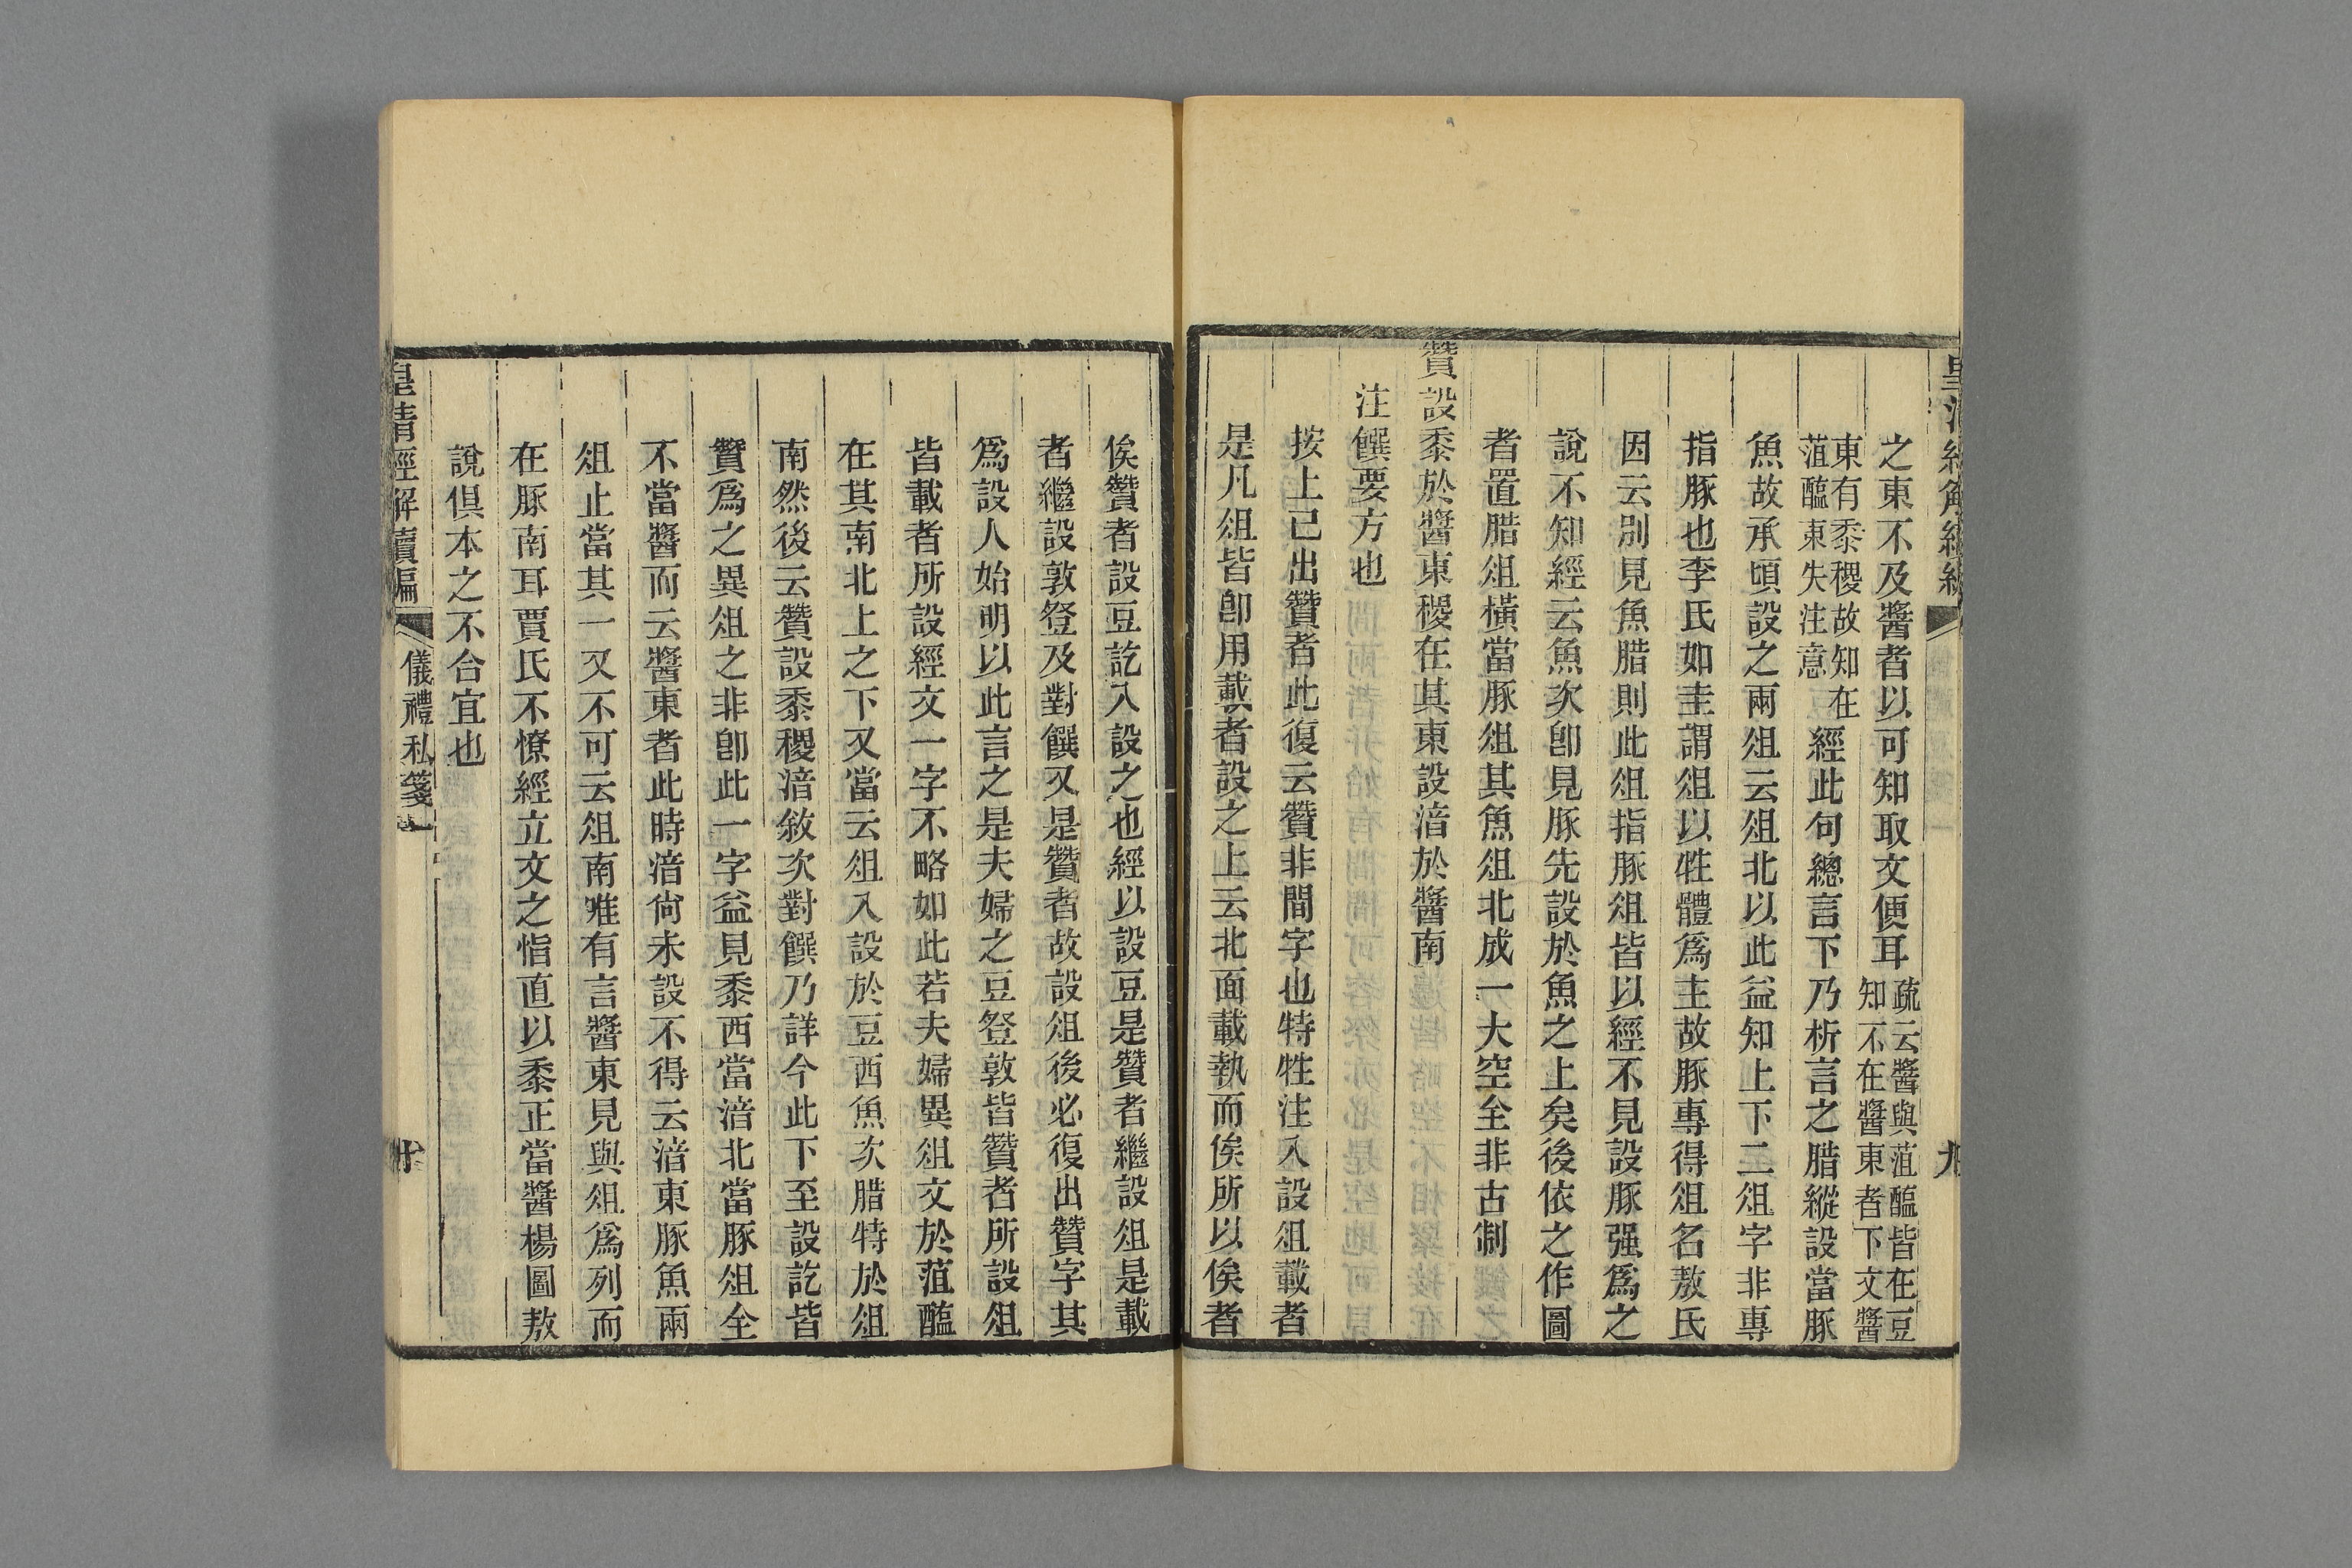 皇清經解續編
九
之東不及醬者以可知取文便耳疏云醬與菹醢皆在豆知不在醬東者下文醬
東有黍稷故知在菹醢東失注意經此句總言下乃析言之腊縱設當豚
魚故承頃設之兩俎云俎北以此益知上下二俎字非專
指豚也李氏如圭謂俎以牲體爲主故豚專得俎名敖氏
因云別見魚腊則此俎指豚俎皆以經不見設豚强爲之
說不知經云魚次卽見豚先設於魚之上矣後依之作圖
者置腊俎橫當豚俎其魚俎北成一大空全非古制
贊設黍於醬東稷在其東設湆於醬南
注饌要方也
按上已出贊者此復云贊非間字也特牲注入設俎載者
是凡俎皆卽用載者設之上云北面載執而俟所以俟者
俟贊者設豆訖入設之也經以設豆是贊者繼設俎是載
者繼設敦豋及對饌又是贊者故設俎後必復出贊字其
爲設人始明以此言之是夫婦之豆豋敦皆贊者所設俎
皆載者所設經文一字不略如此若夫婦異俎文於菹醢
在其南北上之下又當云俎入設於豆西魚次腊特於俎
南然後云贊設黍稷湆敘次對饌乃詳今此下至設訖皆
贊爲之異俎之非卽此一字益見黍西當湆北當豚俎全
不當醬而云醬東者此時湆尙未設不得云湆東豚魚兩
俎止當其一又不可云俎南雖有言醬東見與俎爲列而
在豚南耳賈氏不憭經立文之恉直以黍正當醬楊圖敖
說俱本之不合宜也
皇清經解續編
儀禮私箋一
十